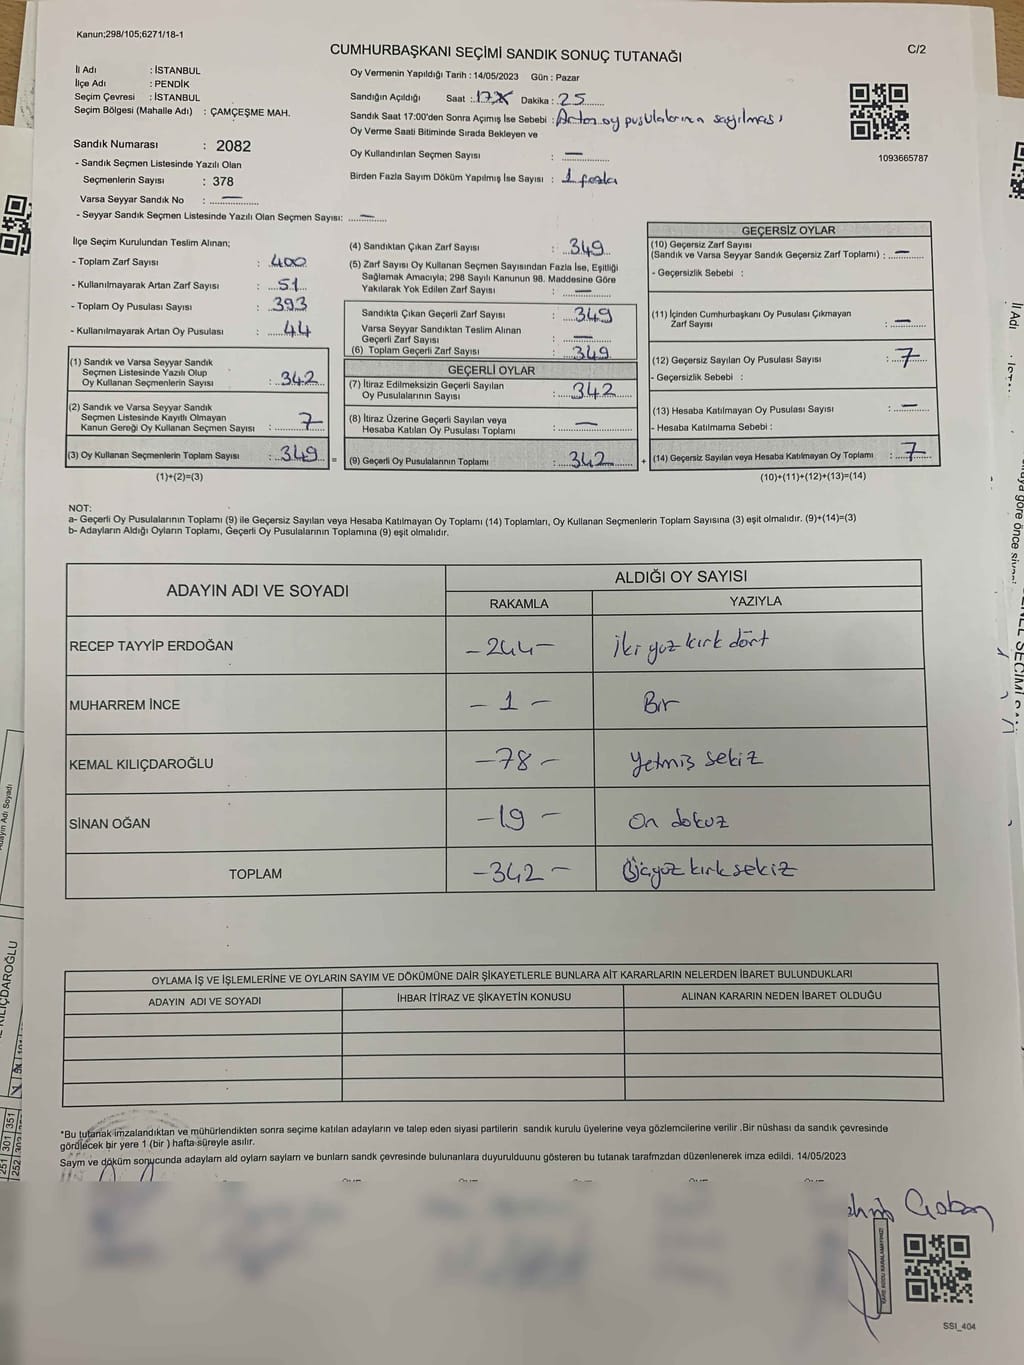 Kanun;298/105;6271/18-1
C/2
CUMHURBAŞKANI SEÇİMİ SANDIK SONUÇ TUTANAĞI
İl Adı : İSTANBUL
İlçe Adı : PENDİK
Seçim Çevresi : İSTANBUL
Seçim Bölgesi (Mahalle Adı) : ÇAMÇEŞME MAH.
Sandık Numarası : 2082
- Sandık Seçmen Listesinde Yazılı Olan
Seçmenlerin Sayısı : 378
Varsa Seyyar Sandık No : —
- Seyyar Sandık Seçmen Listesinde Yazılı Olan Seçmen Sayısı: —
Oy Vermenin Yapıldığı Tarih : 14/05/2023 Gün : Pazar
Sandığın Açıldığı Saat : 17 Dakika : 25
Sandık Saat 17:00'den Sonra Açımış İse Sebebi : Artan oy pusulalarının sayılması
Oy Verme Saati Bitiminde Sırada Bekleyen ve
Oy Kullandırılan Seçmen Sayısı : —
Birden Fazla Sayım Döküm Yapılmış İse Sayısı : 1 fazla
1093665787
İlçe Seçim Kurulundan Teslim Alınan;
- Toplam Zarf Sayısı : 400
- Kullanılmayarak Artan Zarf Sayısı : 51
- Toplam Oy Pusulası Sayısı : 393
- Kullanılmayarak Artan Oy Pusulası : 44
(1) Sandık ve Varsa Seyyar Sandık
Seçmen Listesinde Yazılı Olup
Oy Kullanan Seçmenlerin Sayısı : 342
(2) Sandık ve Varsa Seyyar Sandık
Seçmen Listesinde Kayıtlı Olmayan
Kanun Gereği Oy Kullanan Seçmen Sayısı : 7
(3) Oy Kullanan Seçmenlerin Toplam Sayısı : 349 =
(1)+(2)=(3)
(4) Sandıktan Çıkan Zarf Sayısı : 349
(5) Zarf Sayısı Oy Kullanan Seçmen Sayısından Fazla İse, Eşitliği
Sağlamak Amacıyla; 298 Sayılı Kanunun 98. Maddesine Göre
Yakılarak Yok Edilen Zarf Sayısı : —
Sandıkta Çıkan Geçerli Zarf Sayısı : 349
Varsa Seyyar Sandıktan Teslim Alınan
Geçerli Zarf Sayısı : —
(6) Toplam Geçerli Zarf Sayısı : 349
GEÇERLİ OYLAR
(7) İtiraz Edilmeksizin Geçerli Sayılan
Oy Pusulalarının Sayısı : 342
(8) İtiraz Üzerine Geçerli Sayılan veya
Hesaba Katılan Oy Pusulası Toplamı : —
(9) Geçerli Oy Pusulalarının Toplamı : 342 +
GEÇERSİZ OYLAR
(10) Geçersiz Zarf Sayısı
(Sandık ve Varsa Seyyar Sandık Geçersiz Zarf Toplamı) : —
- Geçersizlik Sebebi :
(11) İçinden Cumhurbaşkanı Oy Pusulası Çıkmayan
Zarf Sayısı : —
(12) Geçersiz Sayılan Oy Pusulası Sayısı : 7
- Geçersizlik Sebebi :
(13) Hesaba Katılmayan Oy Pusulası Sayısı : —
- Hesaba Katılmama Sebebi :
(14) Geçersiz Sayılan veya Hesaba Katılmayan Oy Toplamı : 7
(10)+(11)+(12)+(13)=(14)
NOT:
a- Geçerli Oy Pusulalarının Toplamı (9) ile Geçersiz Sayılan veya Hesaba Katılmayan Oy Toplamı (14) Toplamları, Oy Kullanan Seçmenlerin Toplam Sayısına (3) eşit olmalıdır. (9)+(14)=(3)
b- Adayların Aldığı Oyların Toplamı, Geçerli Oy Pusulalarının Toplamına (9) eşit olmalıdır.
ADAYIN ADI VE SOYADI
ALDIĞI OY SAYISI
RAKAMLA YAZIYLA
RECEP TAYYİP ERDOĞAN - 244 - İki yüz kırk dört
MUHARREM İNCE - 1 - Bir
KEMAL KILIÇDAROĞLU - 78 - Yetmiş sekiz
SİNAN OĞAN - 19 - On dokuz
TOPLAM - 342 - Üçyüz kırk sekiz
OYLAMA İŞ VE İŞLEMLERİNE VE OYLARIN SAYIM VE DÖKÜMÜNE DAİR ŞİKAYETLERLE BUNLARA AİT KARARLARIN NELERDEN İBARET BULUNDUKLARI
ADAYIN ADI VE SOYADI İHBAR İTİRAZ VE ŞİKAYETİN KONUSU ALINAN KARARIN NEDEN İBARET OLDUĞU
*Bu tutanak imzalandıktan ve mühürlendikten sonra seçime katılan adayların ve talep eden siyasi partilerin sandık kurulu üyelerine veya gözlemcilerine verilir .Bir nüshası da sandık çevresinde
görülecek bir yere 1 (bir ) hafta süreyle asılır.
Saym ve döküm sonucunda adaylarn ald oylarn saylarn ve bunlarn sandk çevresinde bulunanlara duyurulduunu gösteren bu tutanak tarafmzdan düzenlenerek imza edildi. 14/05/2023
Çoban
KARE KODU KARALAMAYINIZ!
SSI_404
İl Adı
KILIÇDAROĞLU
Adayın Adı Soyadı
251 301 351